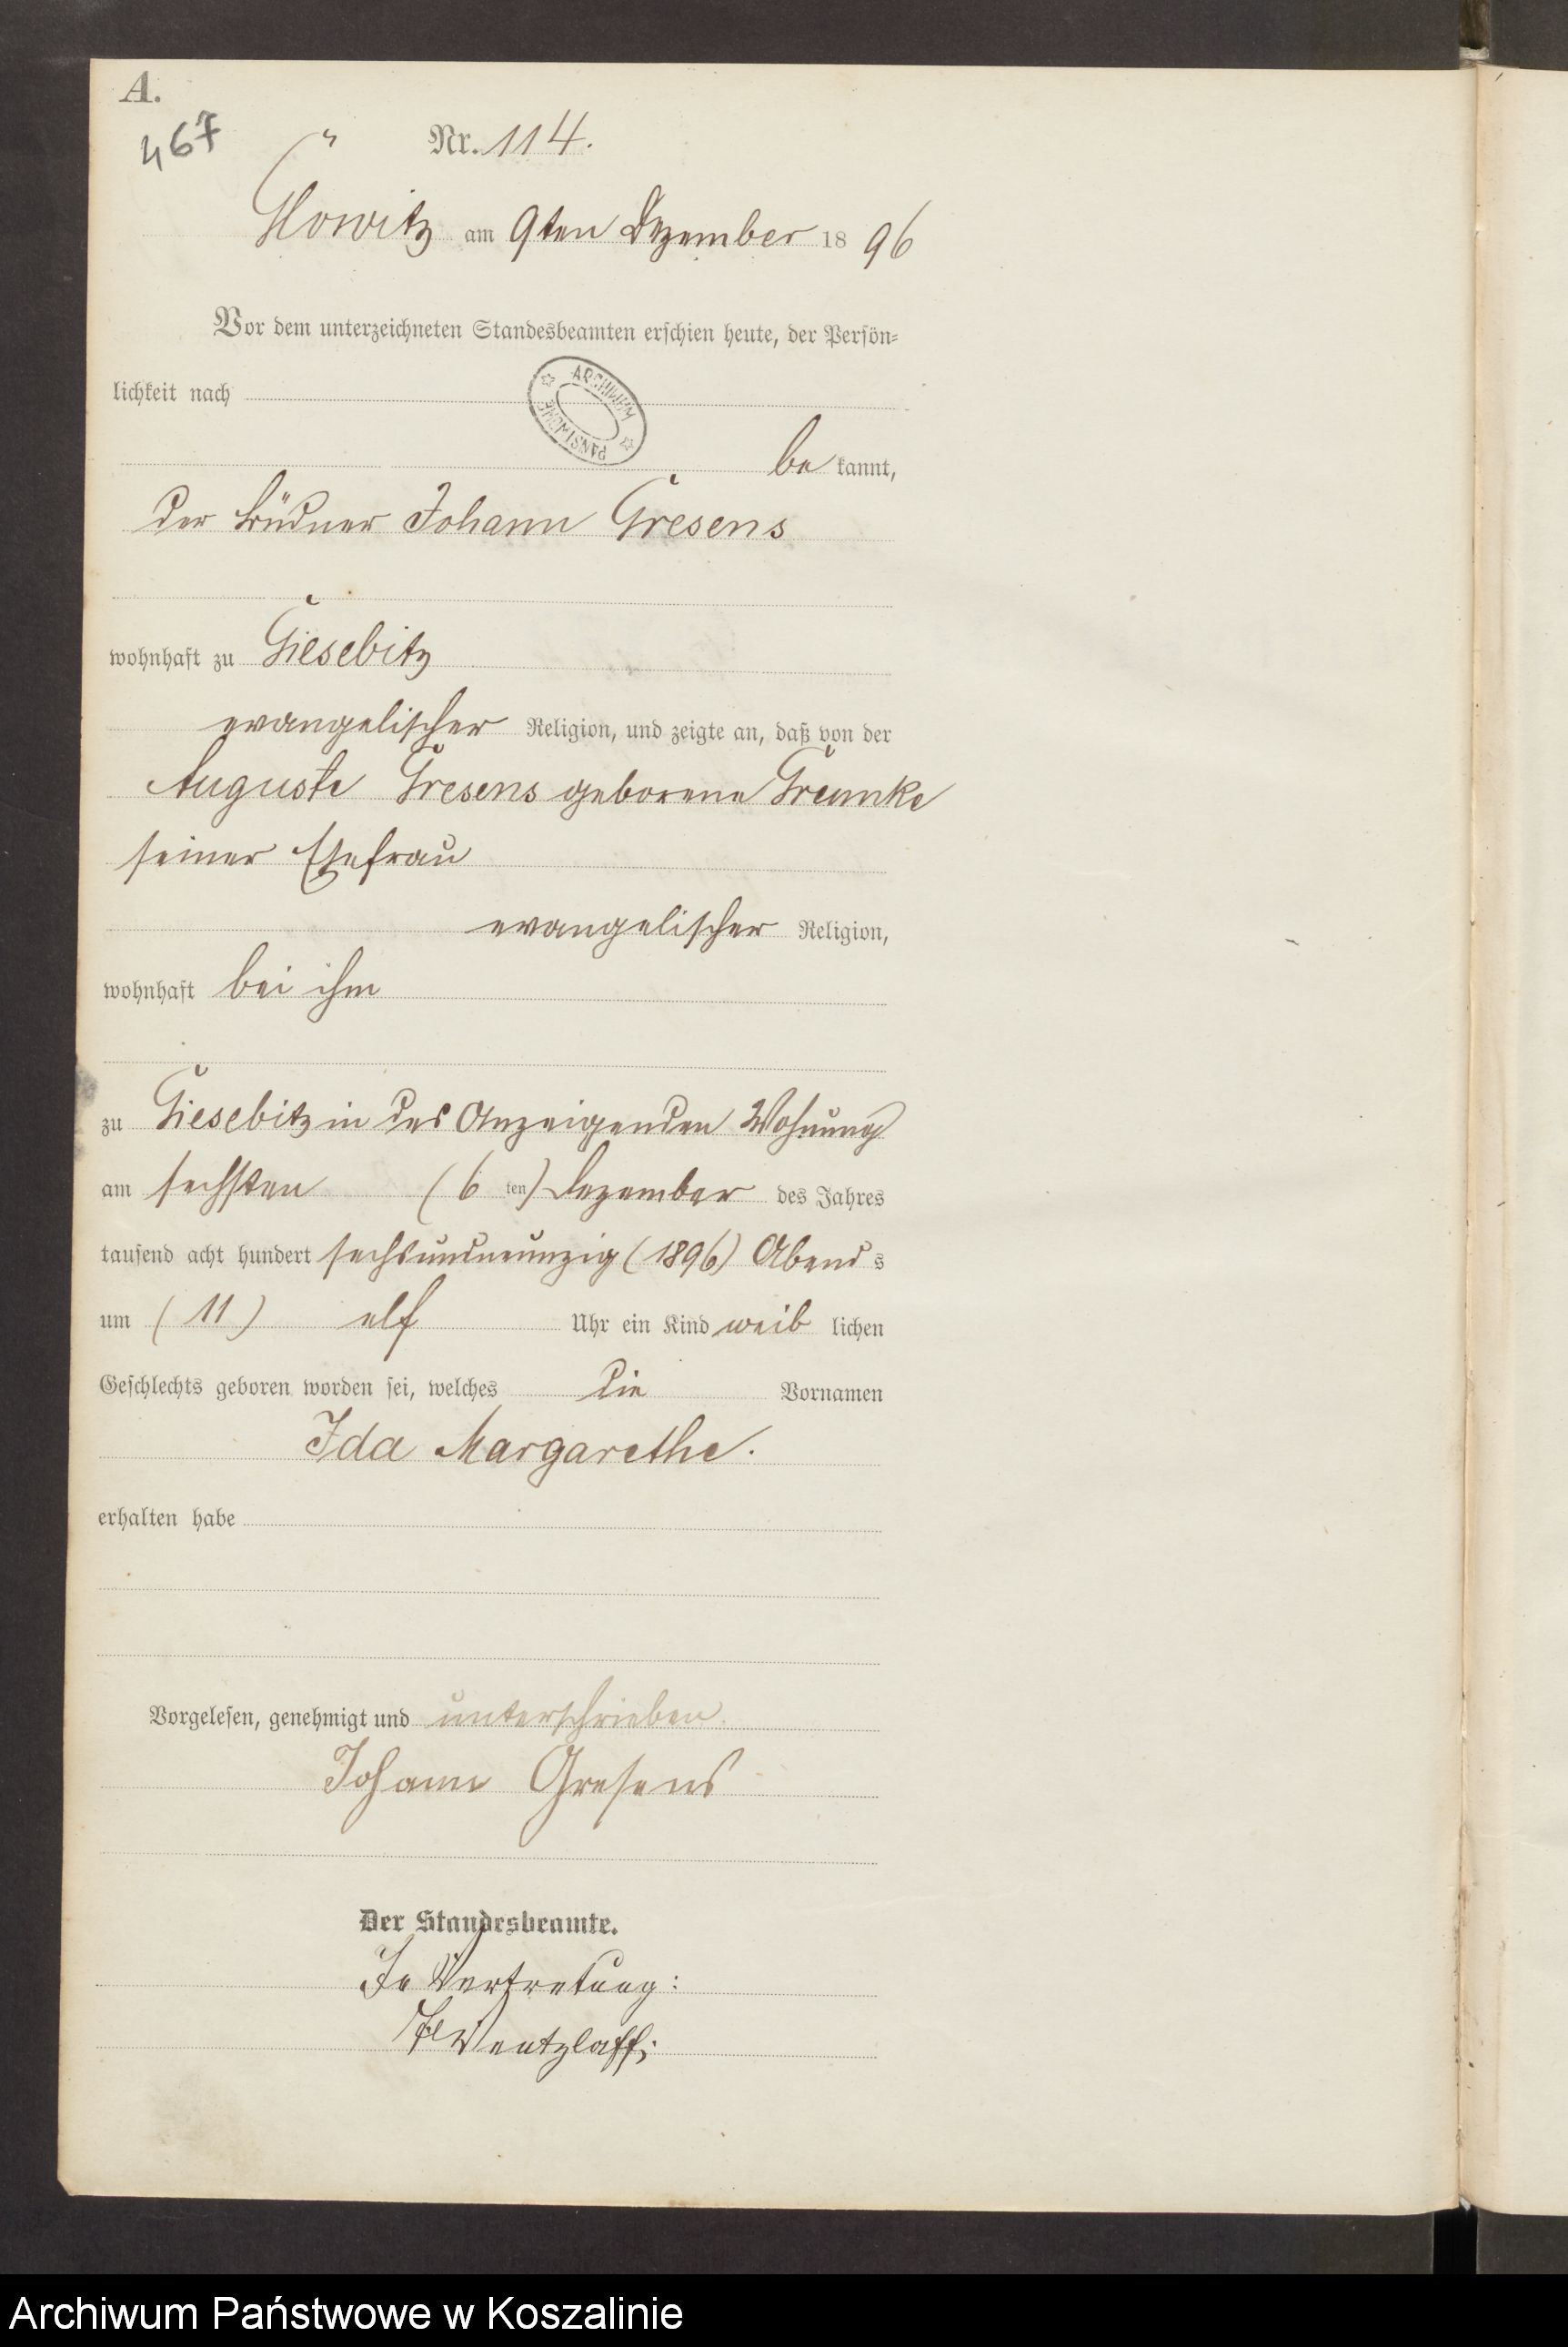 A.
467
Nr. 114.
Glowitz am 9ten Dezember 1896
Vor dem unterzeichneten Standesbeamten erschien heute, der Persön-
lichkeit nach
ARCHIWUM PAŃSTWOWE
be kannt,
der Büdner Johann Gresens
wohnhaft zu Giesebitz
evangelischer Religion, und zeigte an, daß von der
Auguste Gresens geborene
seiner Ehefrau
evangelischer Religion,
wohnhaft bei ihm
zu Giesebitz in des Anzeigenden Wohnung
am sechsten (6 ten) Dezember des Jahres
tausend acht hundert sechsundneunzig (1896) Abend s
um (11) elf Uhr ein Kind weib lichen
Geschlechts geboren worden sei, welches die Vornamen
Ida Margarethe.
erhalten habe
Vorgelesen, genehmigt und unterschrieben
Johann Gresens
Der Standesbeamte.
In Vertretung:
Wentzlaff
Archiwum Państwowe w Koszalinie